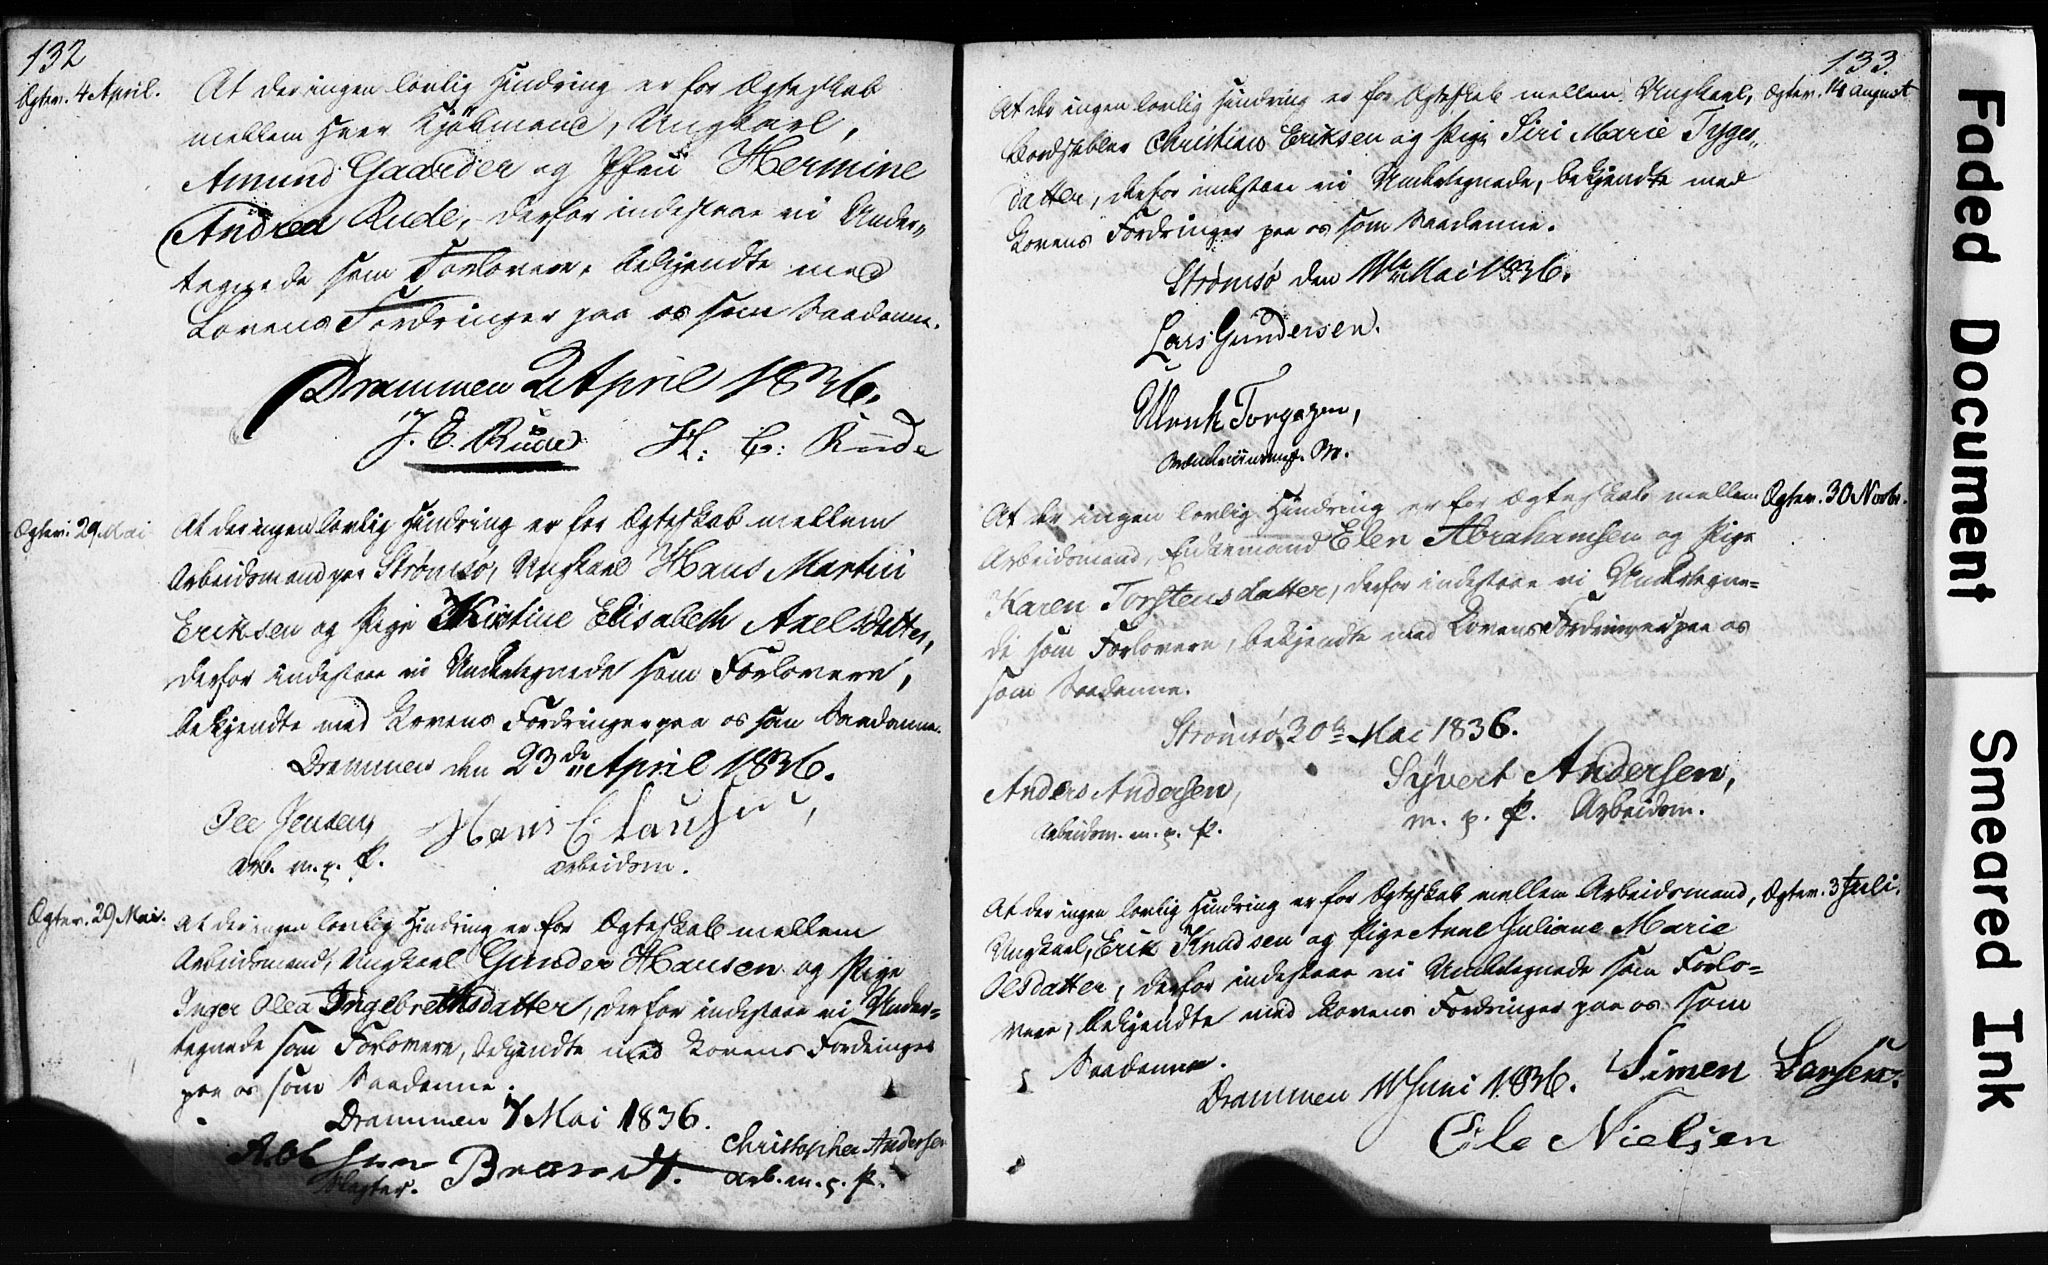 132
Ægtev. 4 April.
At der ingen lovlig Hindring er for Ægteskab
mellem Herr Kjøbmand, Ungkarl,
Amund Gaarder og Jfru Hermine
Andrea Rude, derfor indestaae vi Under-
tegnede som Forlovere, bekjendte med
Lovens Fordringer paa os som Saadanne.
Drammen 2 April 1836.
J. E. Rude H. C: Rude
Ægtev. 29 Mai
At der ingen lovlig Hindring er for Ægteskab mellem
Arbeidsmand paa Strømsø, Ungkarl Hans Martin
Eriksen og Pige Kirstine Elisabeth Axelsdatter,
derfor indestaae vi Undertegnede som Forlovere,
bekjendte med Lovens Fordringer paa os som Saadanne.
Drammen den 23de April 1836.
Ole Jensen, Hans Clausen,
arb. m. p. P. arbeidsm.
Ægtev. 29 Mai.
At der ingen lovlig Hindring er for Ægteskab mellem
Arbeidsmand, Ungkarl Gunder Hansen og Pige
Inger Olea Ingebrethsdatter, derfor indestaae vi Under-
tegnede som Forlovere, bekjendte med Lovens Fordringer
paa os som Saadanne.
Drammen 7 Mai 1836.
Brandt. Christopher Andersen
arb. m. p. P.
133.
Ægtev. 14 august
At der ingen lovlig Hindring er for Ægteskab mellem Ungkarl,
Bordstabler Christian Eriksen og Pige Siri Marie Tyges-
datter, derfor indestaae vi Undertegnede, bekjendte med
Lovens Fordringer paa os som Saadanne.
Strømsø den Mai 1836.
Lars Gundersen.
Torgersen,
Ægtev. 30 Novbr.
At der ingen lovlig Hindring er for Ægteskab mellem
Arbeidsmand, Enkemand Elen Abrahamsen og Pige
Karen Torstensdatter, derfor indestaae vi Undertegne-
de som Forlovere, bekjendte med Lovens Fordringer paa os
som Saadanne.
Strømsø 30te Mai 1836.
Anders Andersen, Syvert Andersen,
Arbeidsm. m. p. P. m. p. P. Arbeidsm.
Ægtev. 3 Juli.
At der ingen lovlig Hindring er for Ægteskab mellem Arbeidsmand,
Ungkarl, Erik Knudsen og Pige Anne Juliane Marie
Olsdatter, derfor indestaae vi Undertegnede som Forlo-
vere, bekjendte med Lovens Fordringer paa os som
Saadanne.
Drammen 10 Juni 1836. Simen Hansen.
Ole Nielsen
Faded Document
Smeared Ink